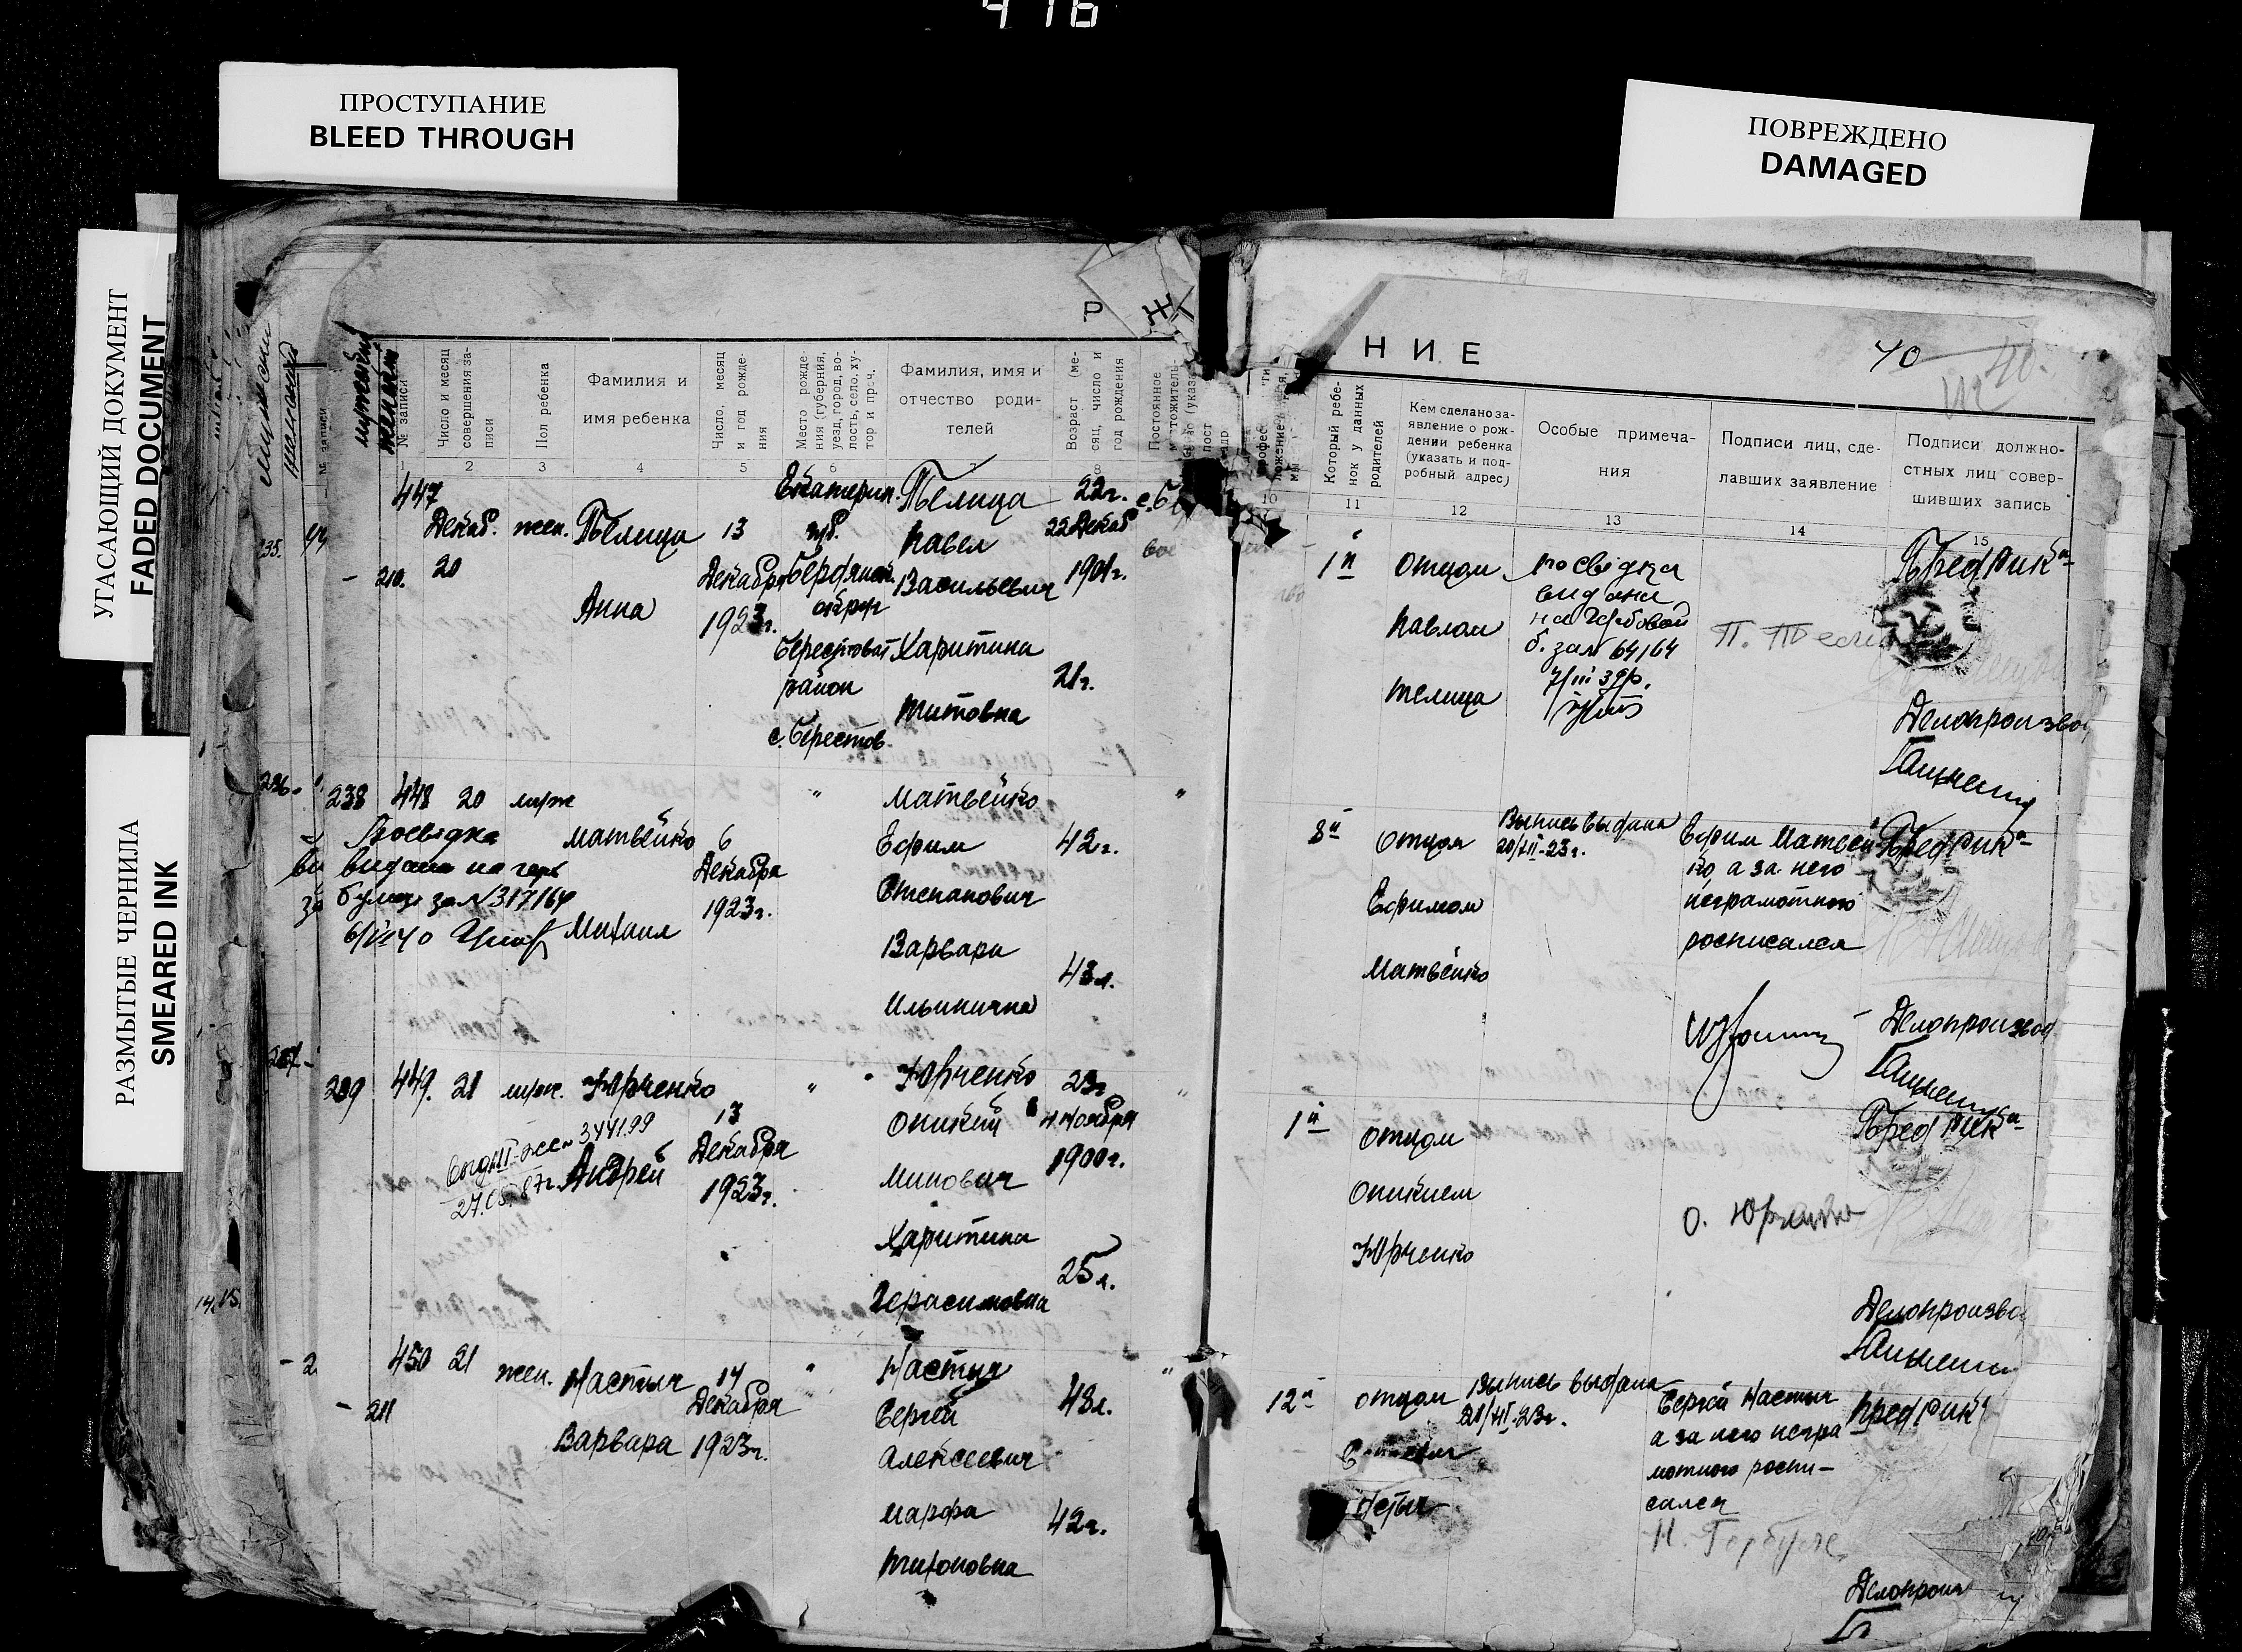 416
ПРОСТУПАНИЕ
BLEED THROUGH
ПОВРЕЖДЕНО
DAMAGED
УГАСАЮЩИЙ ДОКУМЕНТ
FADED DOCUMENT
РАЗМЫТЫЕ ЧЕРНИЛА
SMEARED INK
Р Ж
Н И Е
40
40.
мужеский
женский
№ записи
№ записи
Число и месяц
совершения за-
писи
Пол ребенка
Фамилия и
имя ребенка
Число, месяц
и год рожде-
ния
Место рожде-
ния (губерния,
уезд, город, во-
лость, село, ху-
тор и проч.
Фамилия, имя и
отчество роди-
телей
Возраст (ме-
сяц, число и
год рождения
Постоянное
Который ребе-
нок у данных
родителей
Кем сделано за-
явление о рож-
дении ребенка
(указать и под-
робный адрес)
Особые примеча-
ния
Подписи лиц, сде-
лавших заявление
Подписи должно-
стных лиц совер-
шивших запись
1 2 3 4 5 6 7 8
10 11 12 13 14 15
235.
447
210.
Декаб.
20
жен.
Телица
Анна
13
Декабря
1923г.
Екатерин.
губ.
Бердянск.
округ
Берестоват
район
с. Берестов.
Телица
Павел
Васильевич
Харитина
Титовна
22г.
22 Декаб
1901г.
21г.
1й
Отцом
Павлом
Телица
посвідка
видана
на гербовой
б. за № 64164
7/III 39р.
Пред Рик
Делопроизвод
236
238 448 20 муж
Посвідка
видана на герб
бумаз за N317164
6/VI 40
Матвейко
Михаил
6
Декабря
1923г.
"
Матвейко
Ефим
Степанович
Варвара
Ильинична
42г.
43л.
"
8й
Отцом
Ефимом
Матвейко
Выпись выдана
20/XII-23г.
Ефим Матвей
ко, а за него
неграмотного
росписался
Пред Рик
Делопроизвод
237
239 449. 21 муж.
Юрченко
Андрей
344199
27.05.87г.
13
Декабря
1923г.
"
Юрченко
Оникий
Минович
Харитина
Герасимовна
23г
4 Ноября
1900г.
25л.
"
1й
Отцом
Оникием
Юрченко
О. Юрченко
Пред Рик
Делопроизвод
14.15.
450 21 жен.
211
Настыч
Варвара
14
Декабря
1923г.
"
Настыч
Сергей
Алексеевич
Марфа
Тихоновна
43л.
42г.
"
12й
отцом
Выпись выдана
21/XII-23г.
Сергей Настыч
а за него негра
мотного роспи-
сался
Н. Горбуля
Пред Рик
Делопроиз